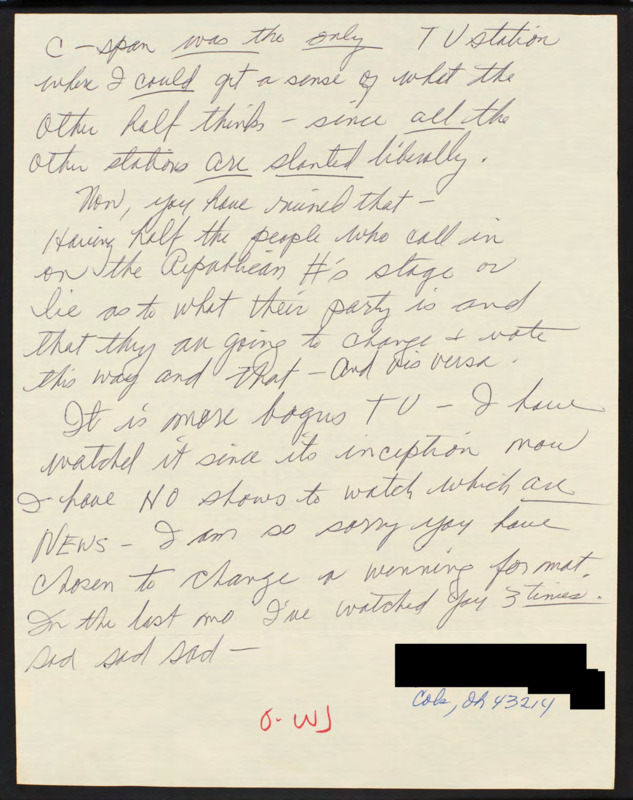 C-span was the only TV station
where I could get a sense of what the
other half thinks - since all the
other stations are slanted liberally.
Now, you have ruined that -
Having half the people who call in
on the Republican #'s stage or
lie as to what their party is and
that they are going to change & vote
this way and that - and vis versa.
It is more bogus TV - I have
watched it since its inception now
I have NO shows to watch which are
NEWS - I am so sorry you have
chosen to change a winning format.
In the last mo I've watched you 3 times.
Sad sad sad -
Cols, Oh 43214
O-WJ